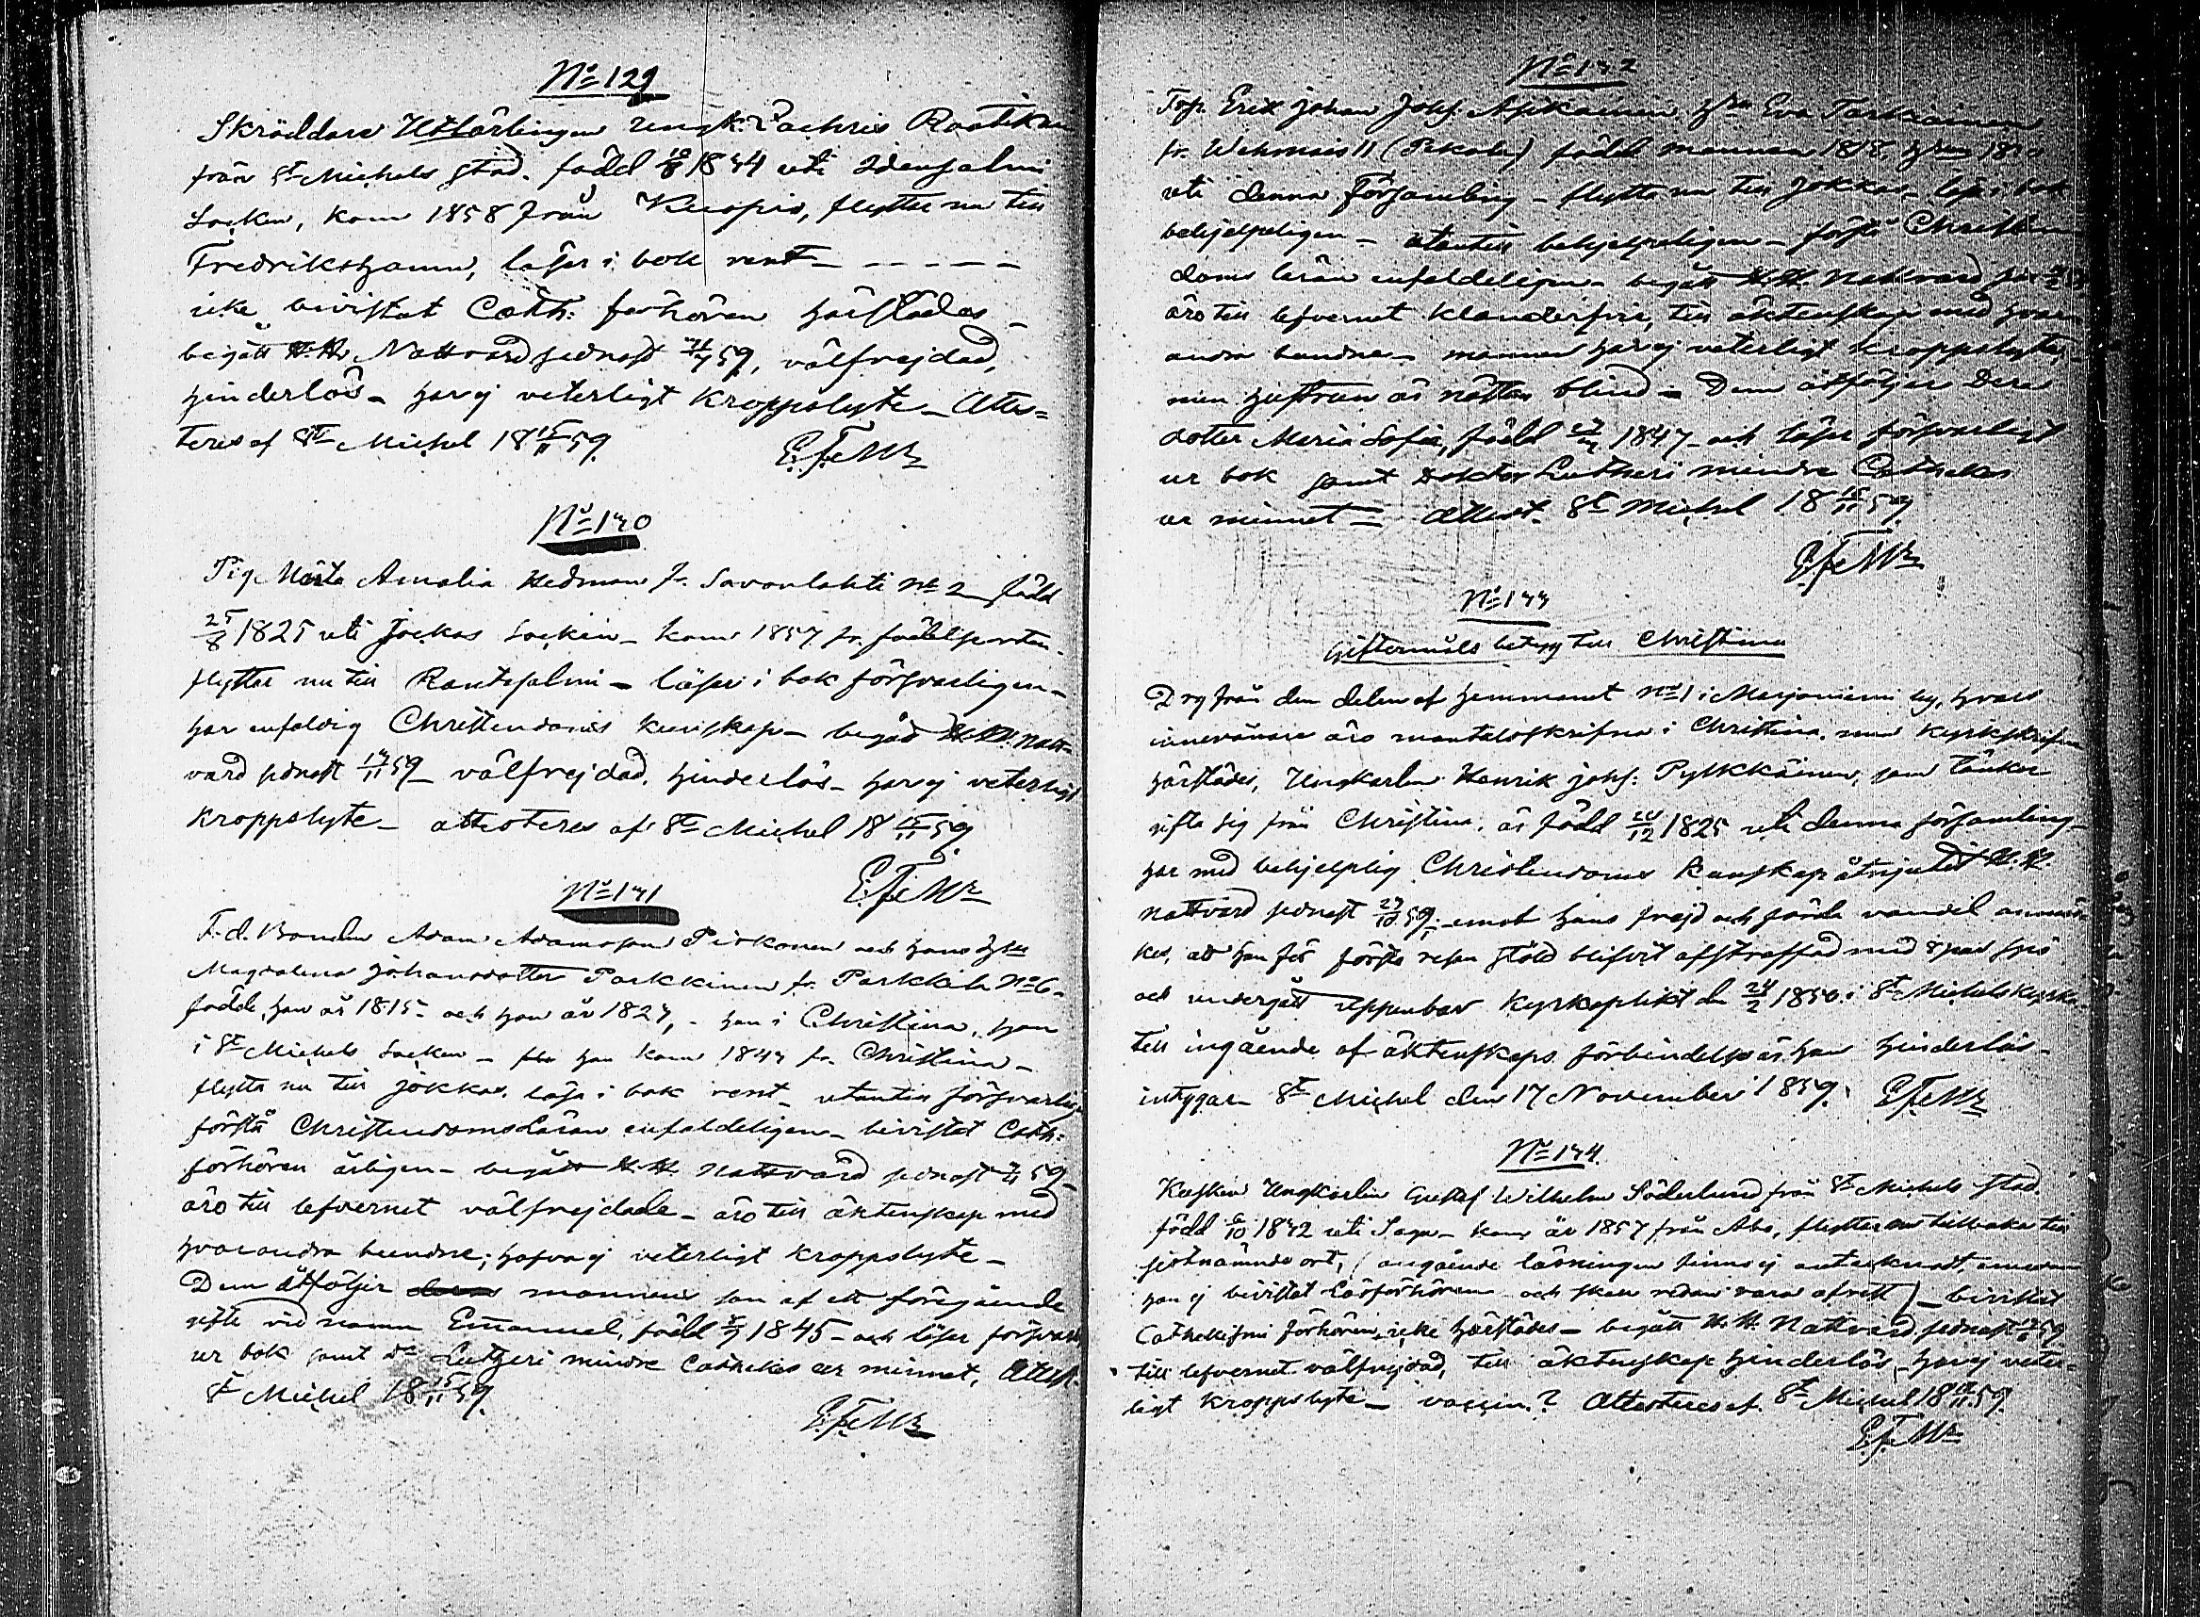 No 129
Skräddare Utlärlingen Ungk. Zachris Raatikan
från St Michels stad. född 10/8 1834 uti Idensalmi
Socken, kom 1858 från Kuopio, flyttar nu till
Fredrikshamn, läser i bok rent — — — — —
icke bevistat Cath: förhören härstädes —
begått H. H. Nattvard sednast 59, välfrejdad,
hinderlös — har ej veterligt kroppslyte — Attes=
teras af St Michel 18 15/11 59.
No 130
Pig. Märta Amalia Hedman fr. Savonlahti No 2 född
25/8 1825 uti Jockas Socken — kom 1857 fr. födelseorten
flyttar nu till Rantasalmi — läser i bok försvarligen —
har enfaldig Christendoms kunskap — begått H. H. natt=
vard sednast 13/11 59 — välfrejdad, hinderlös — har ej veterligt
kroppslyte — attesteras af St Michel 18 15/11 59.
No 131
F. d. Bonden Adam Adamsson Pirkonen och hans hu
Magdalena Johansdotter Parkkinen fr. Parkkila No 6 —
födde, han år 1815 — och hon år 1827, — han i Christina, hon
i St Michels Socken — han kom 1843 fr. Christina —
flytta nu till Jokkas, läsa i bok rent — utantill försvarlig
förstå Christendoms Läran enfaldeligen — bevistat Cath:
förhören årligen — begått H. H. Nattvard sednast 59 —
äro till lefvernet välfrejdade — äro till äktenskap med
hvarandra bundne; hafva ej veterligt kroppslyte —
Dem åtföljer mannens son af ett föregående
gifte vid namn Emanuel, född 1845 — och läser försvarl
ur bok samt Dr Lutheri mindre Cathekes ur minnet, Attest.
St Michel 18 15/11 59.
No 132
Torp. Erik Johan Johss. Asikainen hu Eva Tarkiainen
fr. Wehmais 11 född mannen 1818, hun 18
uti denna Församling — flytta nu till Jokkas — läsa i bok
behjelpeligen — utantill behjelpeligen — förstå Christen
doms läran enfaldeligen — begått H. H. Nattvard
äro till lefvernet klanderfrie, till äktenskap med hvar
andra bundne — mannen har ej veterligt kroppslyte,
men hustrun är nästan blind — Dem åtföljer deras
dotter Maria Sofia, född 1847 — och läser försvarligt
ur bok samt Doktor Lutheri mindre Cathekes
ur minnet — attest. St Michel 18 15/11 59.
No 133
Giftermåls betyg till Christina
Drg från den delen af hemmanet No 1 i Marjoniemi by, hvars
innevånare äro mantalsskrifna i Christina, men kyrkskrifna
härstädes, Ungkarlen Henrik Johss: Pylkkäinen, som tänker
gifta sig från Christina, är född 20/12 1825 uti denna församling —
har med behjelplig Christendoms kunskap åtnjutit H. H.
nattvard sednast 23/10 59. — emot hans frejd och förda vandel anmär
kes, att han för första resan stöld blifvit afstraffad med par spö
och undergått uppenbar kyrkoplikt den 24/2 1850 i St Michels kyrka
till ingående af äktenskaps förbindelse är han hinderlös —
intygar — St Michel den 17 November 1859.
No 134
Kusken Ungkarlen Gustaf Wilhelm Söderlund från St Michels stad.
född 6/10 1832 uti Sagu — kom år 1857 från Åbo, flyttar nu tillbaka till
sistnämnde ort, (angående läsningen finns ej antecknadt, emedan
han ej bevistat Läsförhören och skall redan vara afrest) — bevistat
Cathekismi förhören icke härstädes — begått H. H. Nattvard sednast 59
till lefvernet välfrejdad, till äktenskap hinderlös — har ej veter=
ligt kroppslyte — vaccin.? Attesteras af St Michel 18 59.